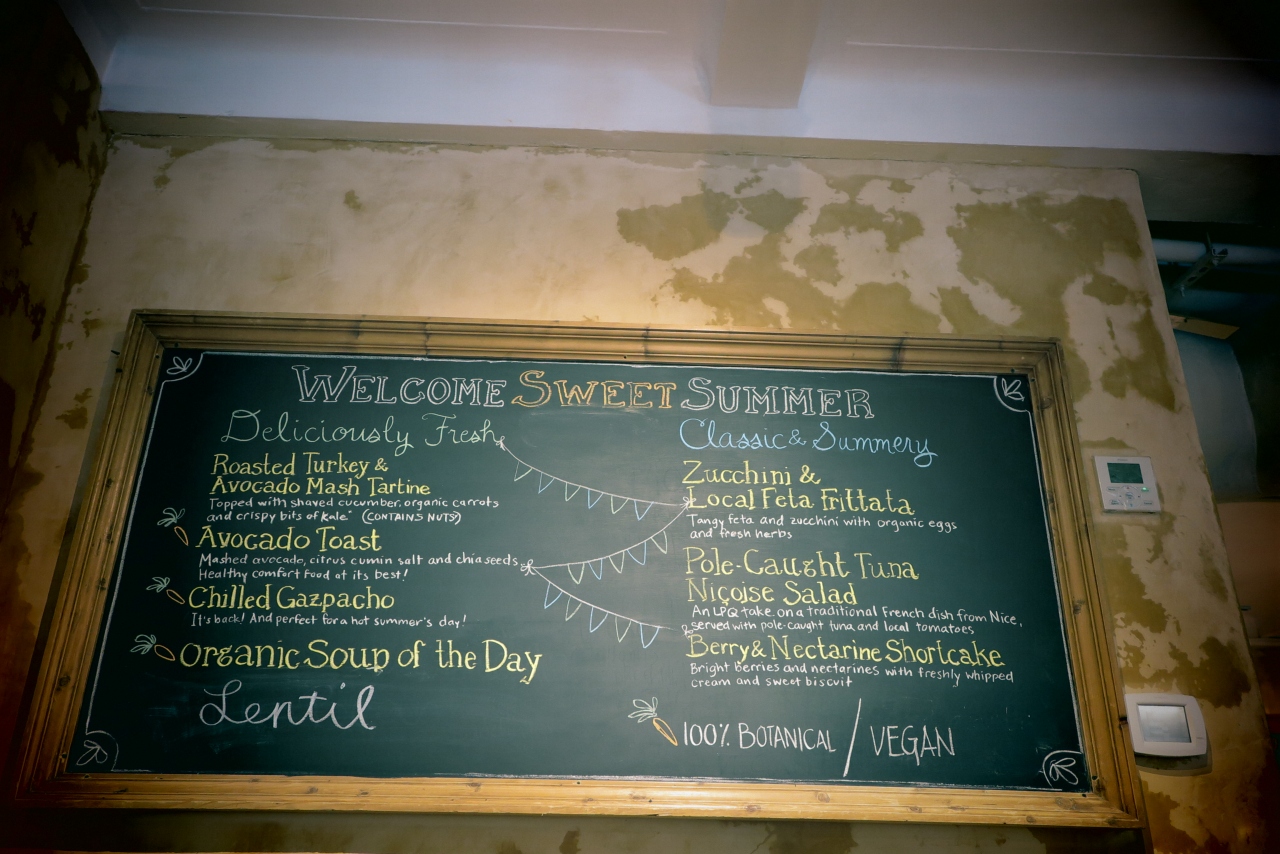 WELCOME SWEET SUMMER
Deliciously Fresh
Roasted Turkey &
Avocado Mash Tartine
Topped with shaved cucumber, organic carrots
and crispy bits of kale* (CONTAINS NUTS)
Avocado Toast
Mashed avocado, citrus cumin salt and chia seeds
Healthy comfort food at its best!
Chilled Gazpacho
It's back! And perfect for a hot summer's day!
Organic Soup of the Day
Lentil
Classic & Summery
Zucchini &
Local Feta Frittata
Tangy feta and zucchini with organic eggs
and fresh herbs
Pole-Caught Tuna
Niçoise Salad
An LPQ take on a traditional French dish from Nice,
served with pole-caught tuna and local tomatoes
Berry & Nectarine Shortcake
Bright berries and nectarines with freshly whipped
cream and sweet biscuit
100% BOTANICAL / VEGAN